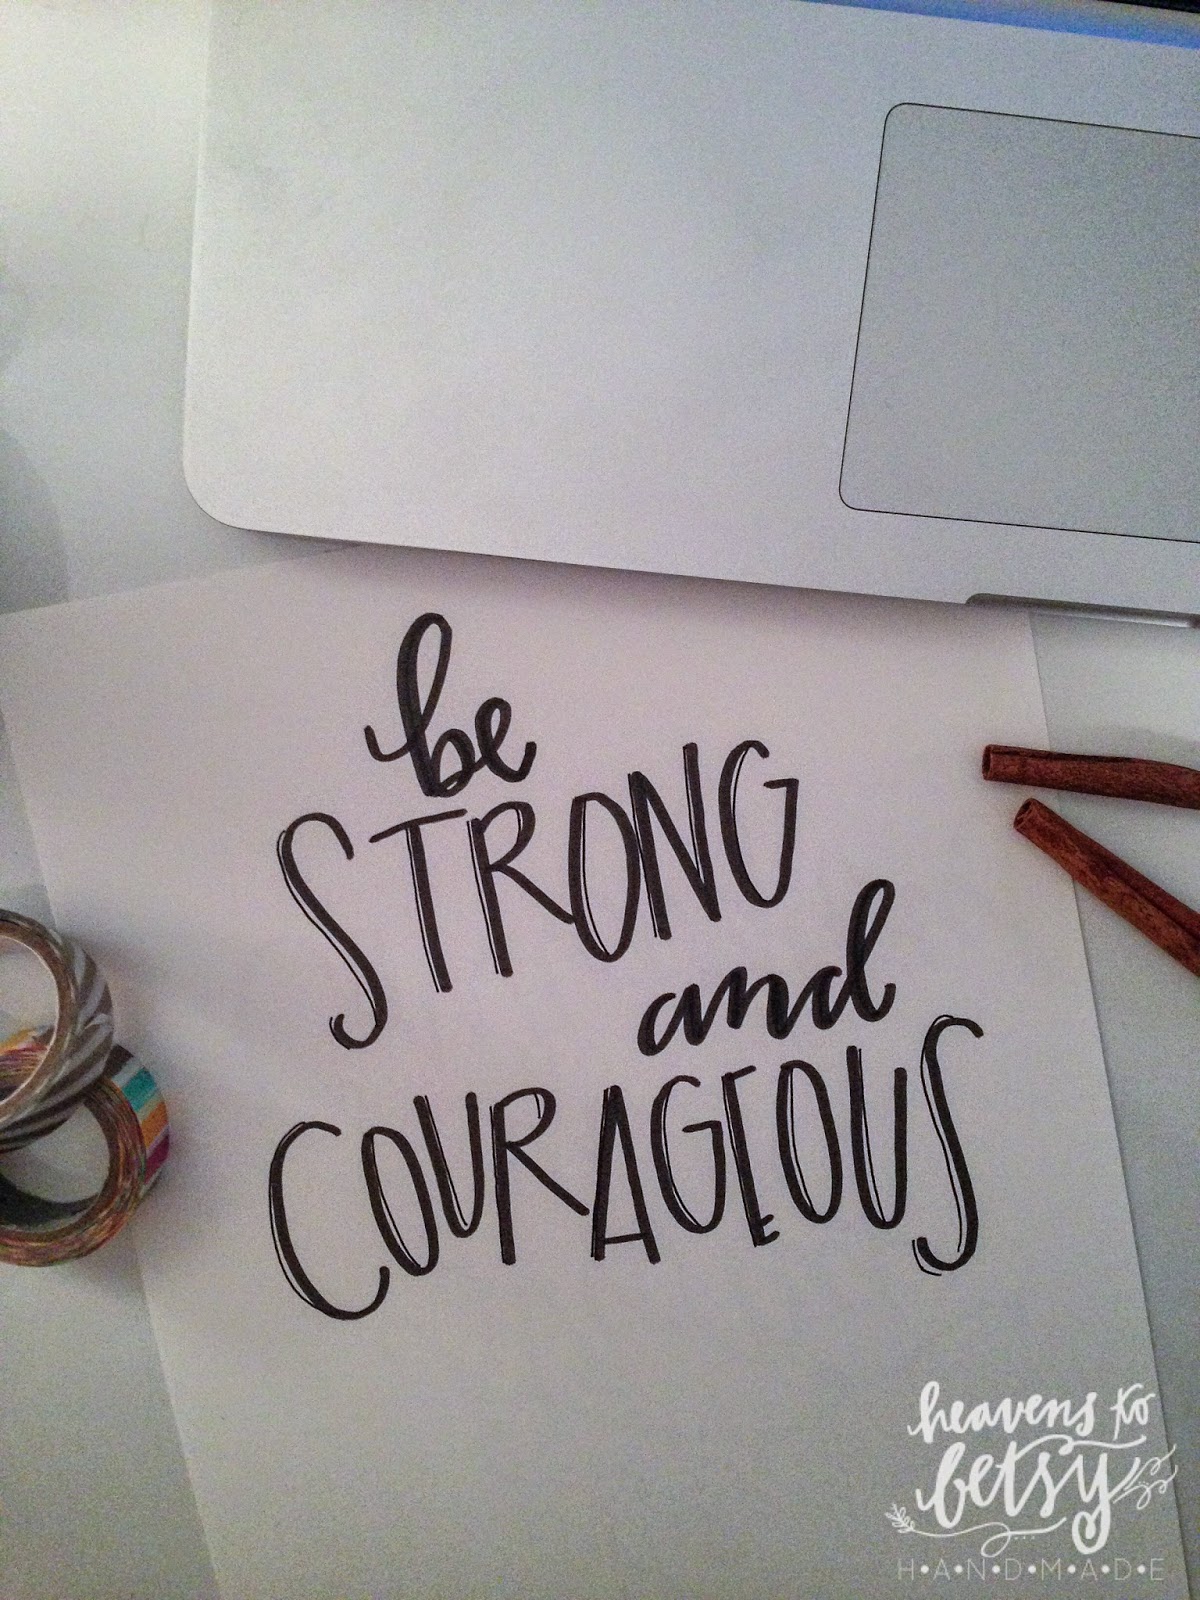 be
STRONG
and
COURAGEOUS
heavens to
betsy
H•A•N•D•M•A•D•E